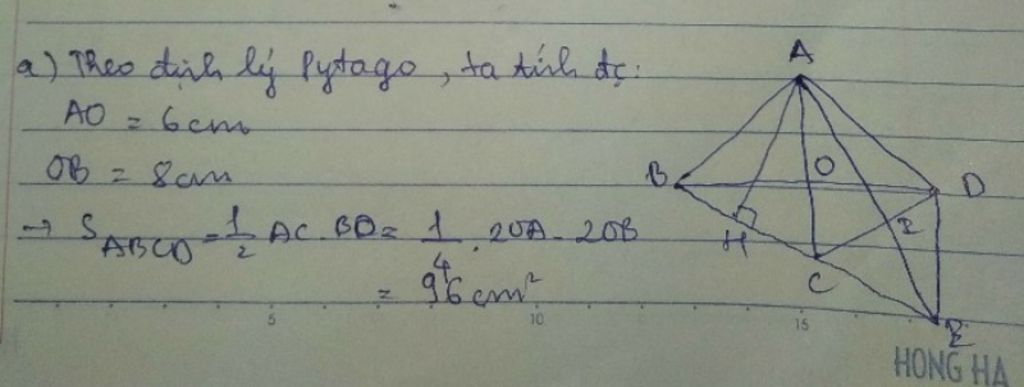 a) Theo định lý Pytago, ta tính đc:
AO = 6cm
OB = 8cm
→ S_ABCD = 1/2 AC . BD = 1/4 . 2OA . 2OB
= 96 cm²
A
B
O
D
H
I
C
E
5 10 15
HONG HA